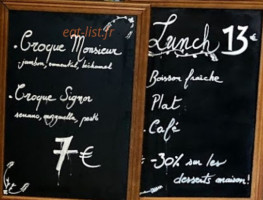 eat-list.fr
- Croque Monsieur
jambon, emmental, béchamel
- Croque Signor
serrano, mozzarella, pesto
7€
Lunch 13€
Boisson fraîche
Plat
Café
= -30% sur les
desserts maison!